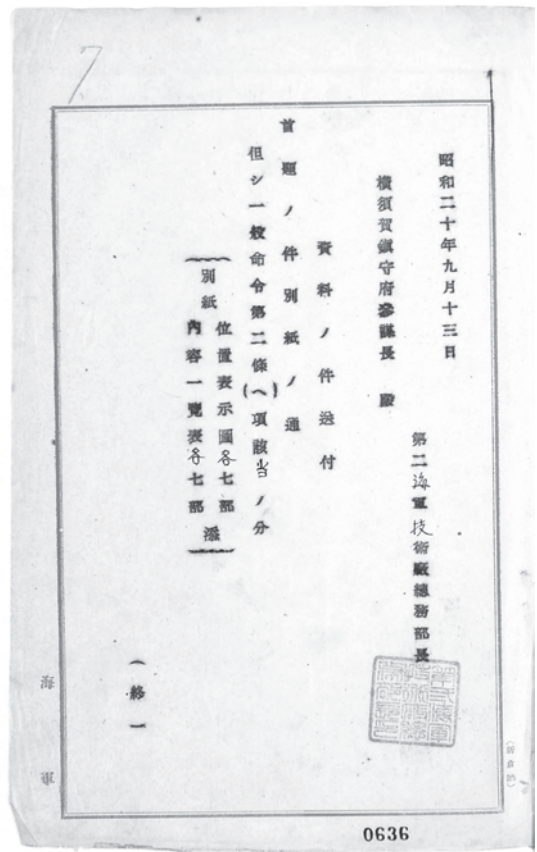 7
昭和二十年九月十三日
第二海軍技術廠總務部長
橫須賀鎭守府參謀長　殿
資料ノ件送付
首題ノ件別紙ノ通
但シ一般命令第二條(ヘ)項該当ノ分
別紙
位置表示圖各七部
內容一覽表各七部
添
(終一
海軍
0636